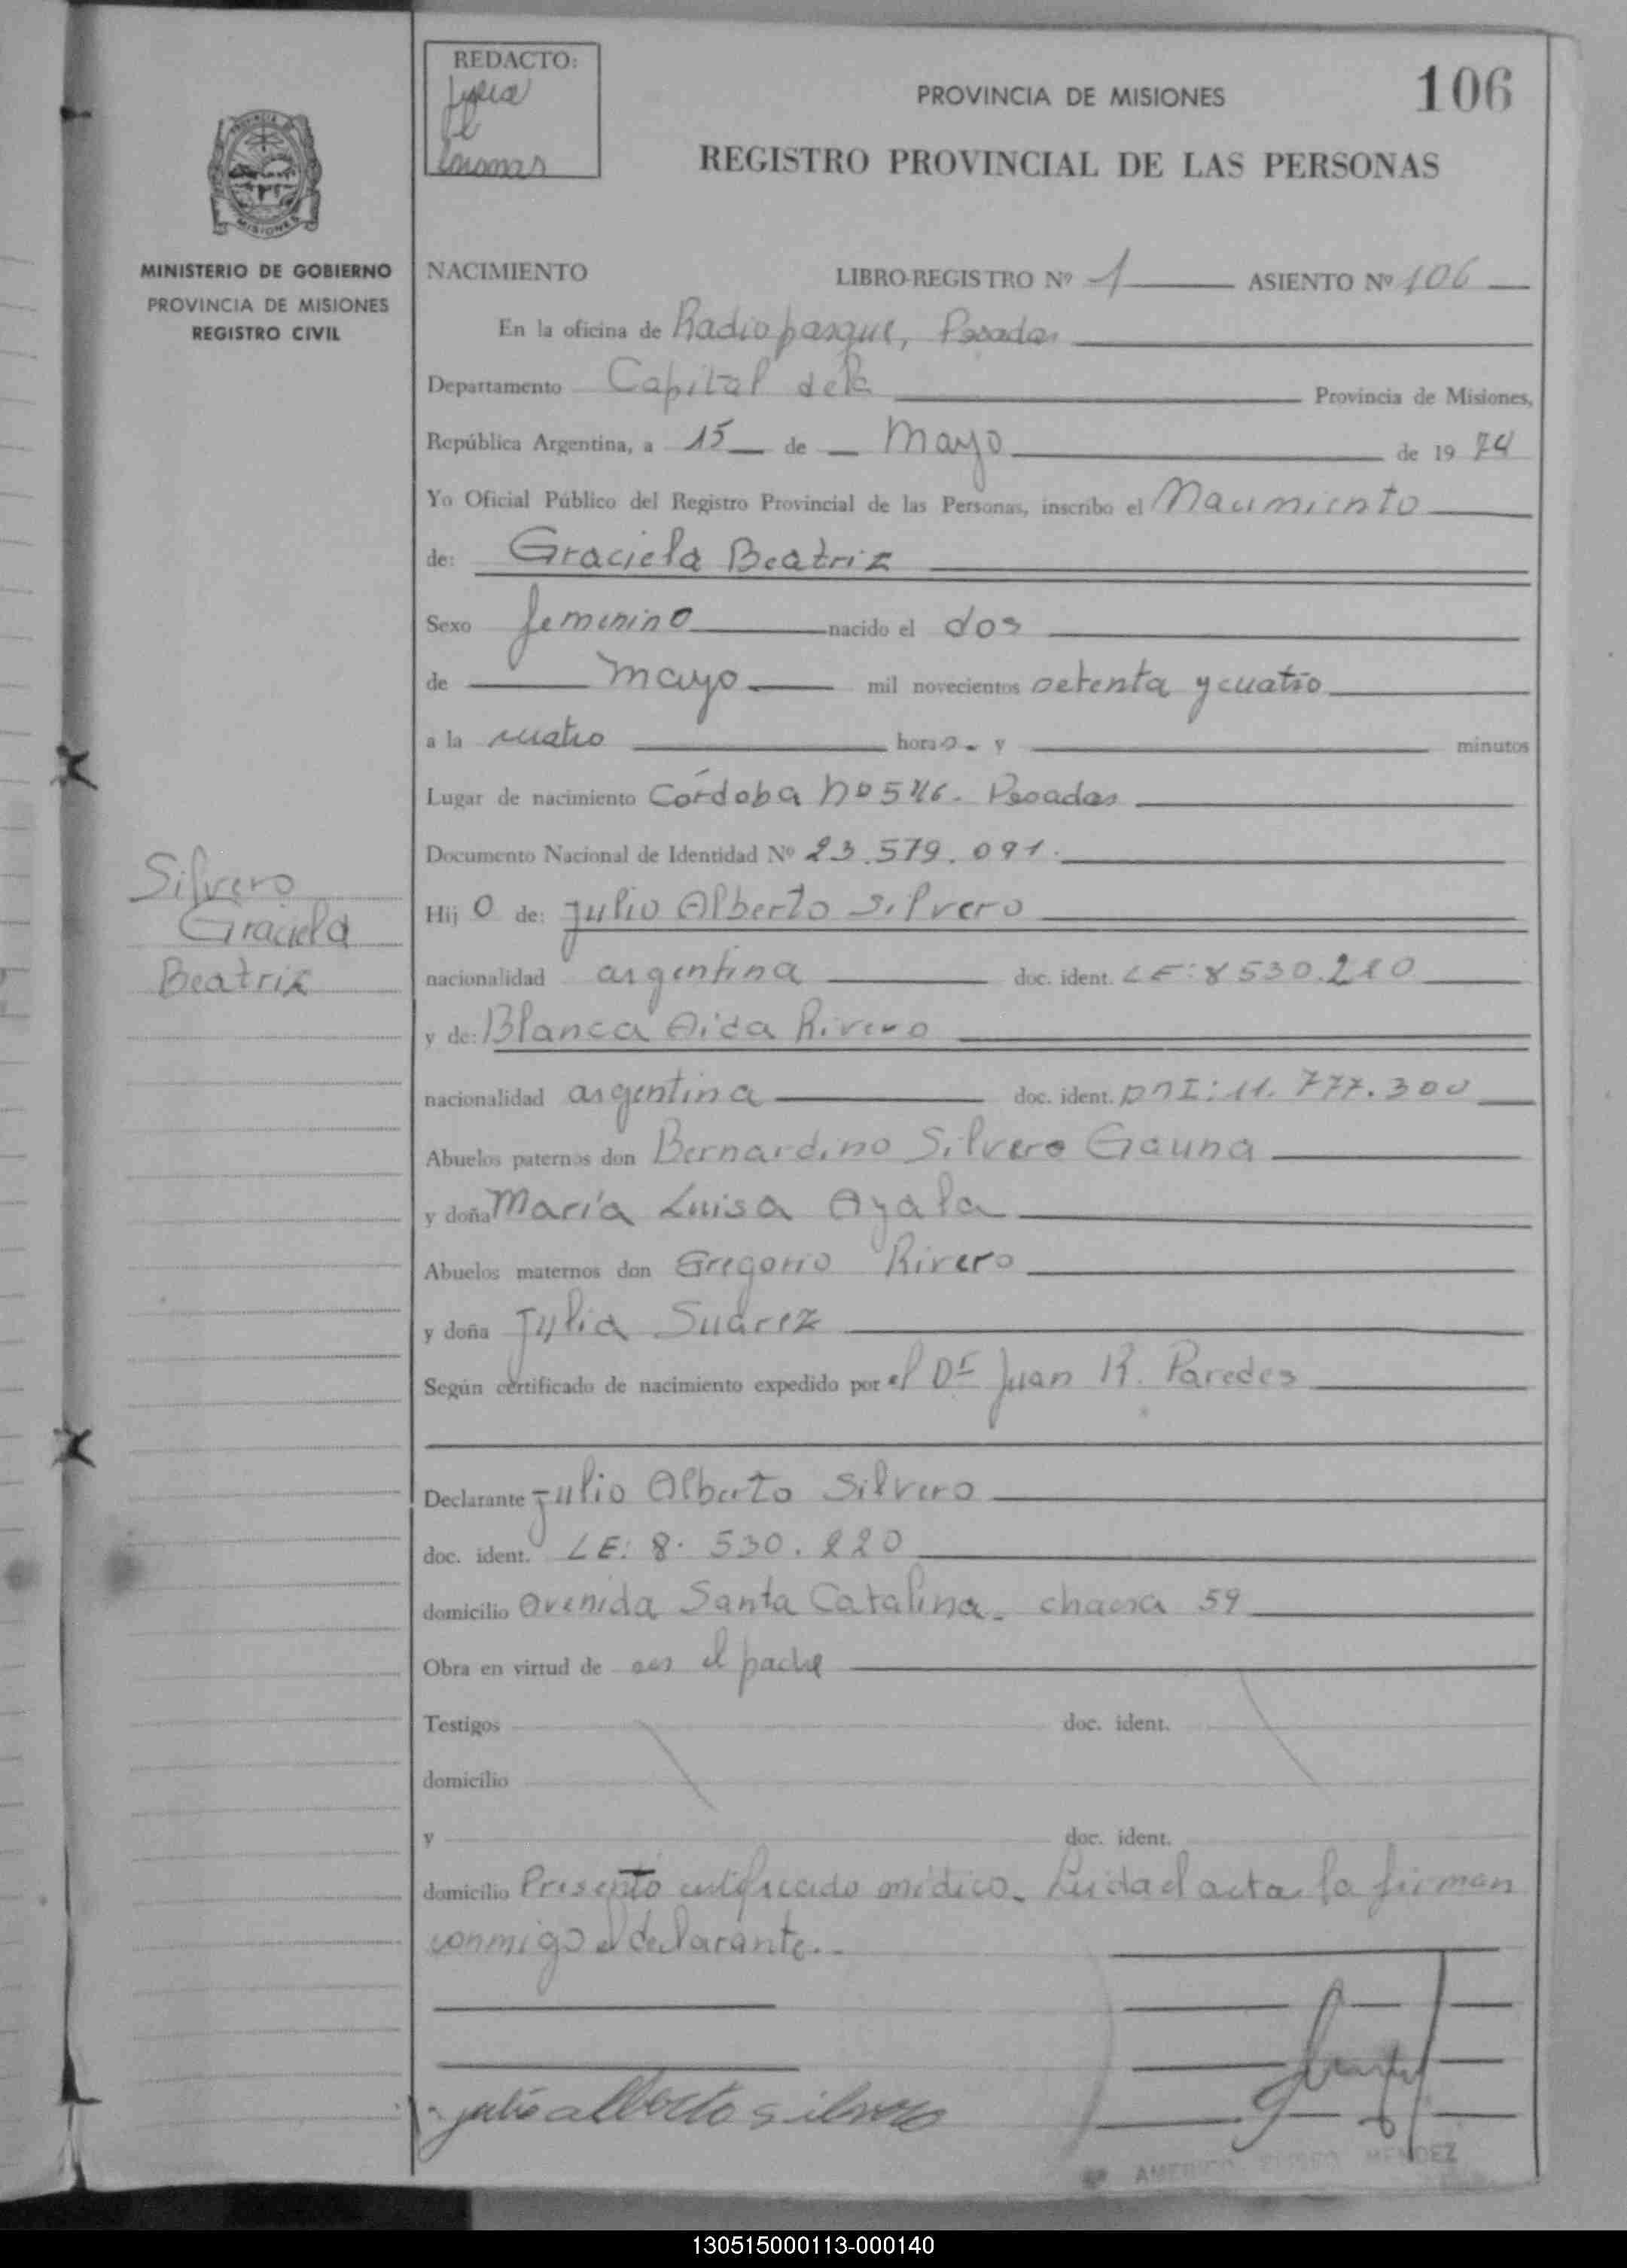 REDACTO:
PROVINCIA DE MISIONES
106
REGISTRO PROVINCIAL DE LAS PERSONAS
PROVINCIA DE
MISIONES
MINISTERIO DE GOBIERNO
PROVINCIA DE MISIONES
REGISTRO CIVIL
NACIMIENTO LIBRO-REGISTRO Nº 1 ASIENTO Nº 106
En la oficina de Radioparque, Posadas
Departamento Capital de la Provincia de Misiones,
República Argentina, a 15 de Mayo de 19 74
Yo Oficial Público del Registro Provincial de las Personas, inscribo el Nacimiento
de: Graciela Beatriz
Sexo femenino nacido el dos
de mayo mil novecientos setenta y cuatro
a la cuatro horas. y minutos
Lugar de nacimiento Córdoba nº 546. Posadas
Documento Nacional de Identidad Nº 23.579.091.
Silvero
Graciela
Beatriz
Hij o de: Julio Alberto Silvero
nacionalidad argentina doc. ident. LE: 8 530.220
y de: Blanca Aida Rivero
nacionalidad argentina doc. ident. DNI: 11.777.300
Abuelos paternos don Bernardino Silvero Gauna
y doña María Luisa Ayala
Abuelos maternos don Gregorio Rivero
y doña Julia Suárez
Según certificado de nacimiento expedido por el Dr Juan R. Paredes
Declarante Julio Alberto Silvero
doc. ident. LE: 8. 530. 220
domicilio Avenida Santa Catalina. chacra 59
Obra en virtud de ser el padre
Testigos doc. ident.
domicilio
y doc. ident.
domicilio Presentó certificado médico. Leída el acta la firman
conmigo el declarante.
julio alberto silvero
MENDEZ
130515000113-000140